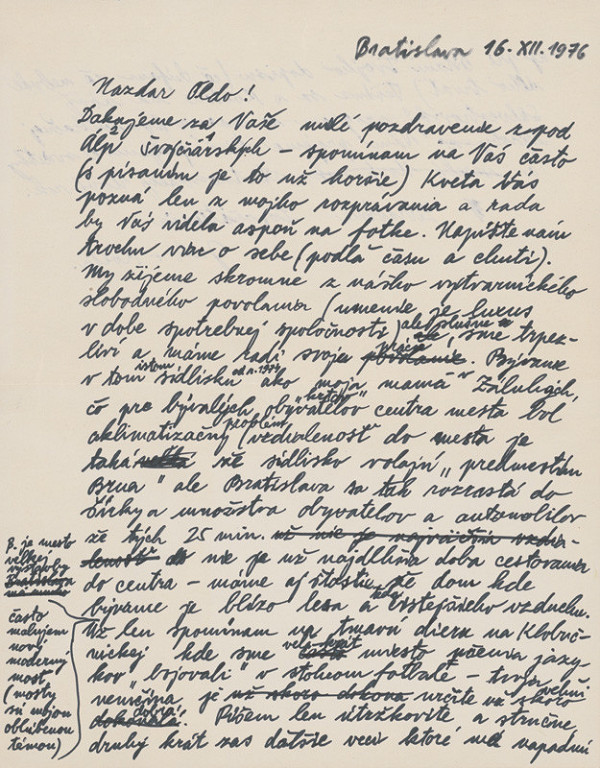 Bratislava 16. XII. 1976
Nazdar Oldo!
Ďakujeme za Vaše milé pozdravenie zpod
Álp Švajčiarských – spomínam na Vás často
(s písaním je to už horšie) Kveta Vás
pozná len z mojho rozprávania a rada
by Vás videla aspoň na fotke. Napíšte nám
trochu viac o sebe (podľa času a chuti).
My žijeme skromne z nášho výtvarnického
slobodného povolania (umenie je luxus
v dobe spotrebnej spoločnosti) ale sme trpez-
liví a máme radi svoju prácu povolanie. Bývame
v tom istom sídlisku od r. 1974 ako moja mama v Záluhách,
čo pre bývalých obyvateľov centra mesta bol
aklimatizačný problém (vzdialenosť do mesta je
taká veľká že sídlisko volajú „predmestím
Brna" ale Bratislava sa tak rozrastá do
šírky a množstva obyvateľov a automobilov
že tých 25 min. už nie je najväčšia vzdia-
lenosť do nie je už najdlhšia doba cestovania
do centra – máme aj šťastie, že dom kde
bývame je blízo lesa a čistejšieho vzduchu.
Už len spomínam na tmavú dieru na Klobuč-
níckej kde sme veľakrát často miesto učenia jazy-
kov „bojovali" v stolnom futbale – tvoja
nemčina je už skoro dokona určite už skoro veľmi
dobrá dokonalá. Píšem len útržkovite a stručne,
druhý krát zas ďatšie veci ktoré mi napadnú
B. je mesto
veľkej
výstavby
Bratislava
často
maľujem
nový
moderný
most
(mosty
sú mojou
obľúbenou
témou)